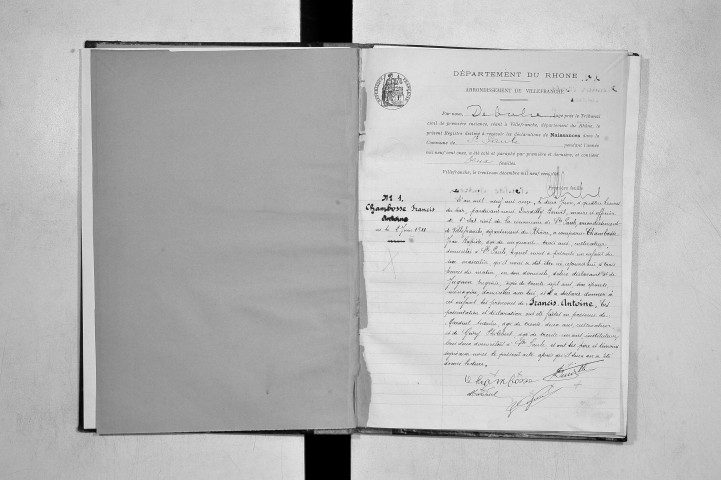 DÉPARTEMENT DU RHONE
ARRONDISSEMENT DE VILLEFRANCHE
Par nous, Juge près le Tribunal
civil de première instance, séant à Villefranche, département du Rhône, le
présent Registre destiné à recevoir les déclarations de Naissances dans la
Commune de Ste Paule pendant l'année
mil neuf cent onze, a été coté et paraphé par première et dernière, et contient
feuillets.
Villefranche, le trentième décembre mil neuf cent dix
Premier feuillet
No 1.
Chambosse Francis
Antoine
né le 2 Juin 1911
L'an mil neuf cent onze, le deux Juin, à quatre heures
du soir, pardevant nous maire et officier
de l'état civil de la commune de Ste Paule, arrondissement
de Villefranche, département du Rhône, a comparu Chambosse
Jean âgé de cinquante trois ans, cultivateur,
domicilié à Ste Paule, lequel nous a présenté un enfant du
sexe masculin, qu'il nous a dit être né aujourd'hui à trois
heures du matin, en son domicile, de lui déclarant et de
Eugénie, âgée de trente sept ans, son épouse,
ménagère, domiciliée avec lui, et il a déclaré donner à
cet enfant les prénoms de Francis Antoine. Ces
présentation et déclaration ont été faites en présence de
âgé de trente deux ans, cultivateur,
et de Philibert, âgé de trente ans, instituteur,
tous deux domiciliés à Ste Paule, et ont les père et témoins
signé avec nous le présent acte, après qu'il leur en a été
donné lecture.
Chambosse